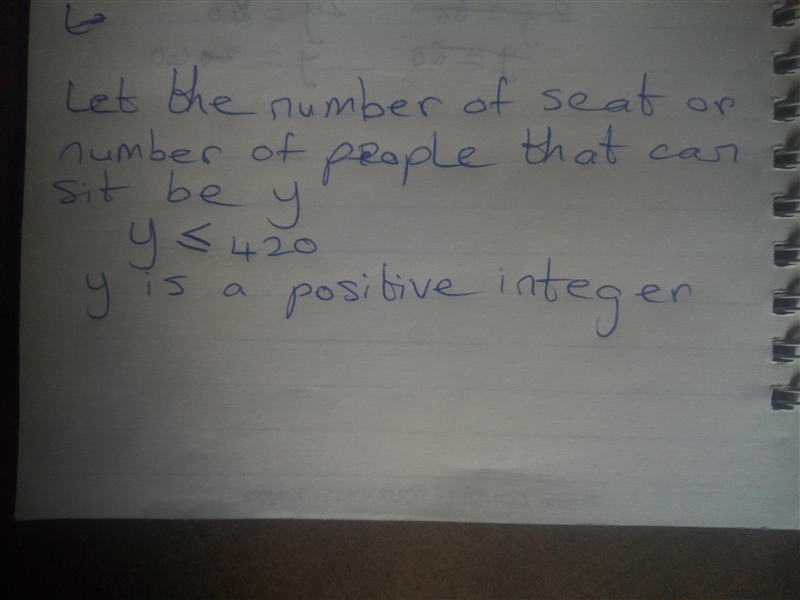 Let the number of seat or
number of people that can
sit be y
y ≤ 420
y is a positive integer